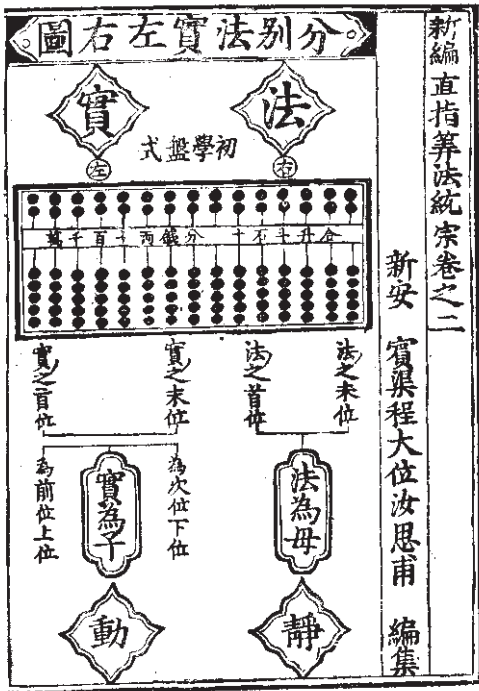 新編直指筭法統宗卷之二
新安 賓渠程大位汝思甫 編集
分別法實左右圖
法
實
右
初學盤式
左
合升斗石十分錢兩十百千萬
法之末位
法之首位
實之末位
實之首位
法為母
為次位下位
實為子
為前位上位
靜
動